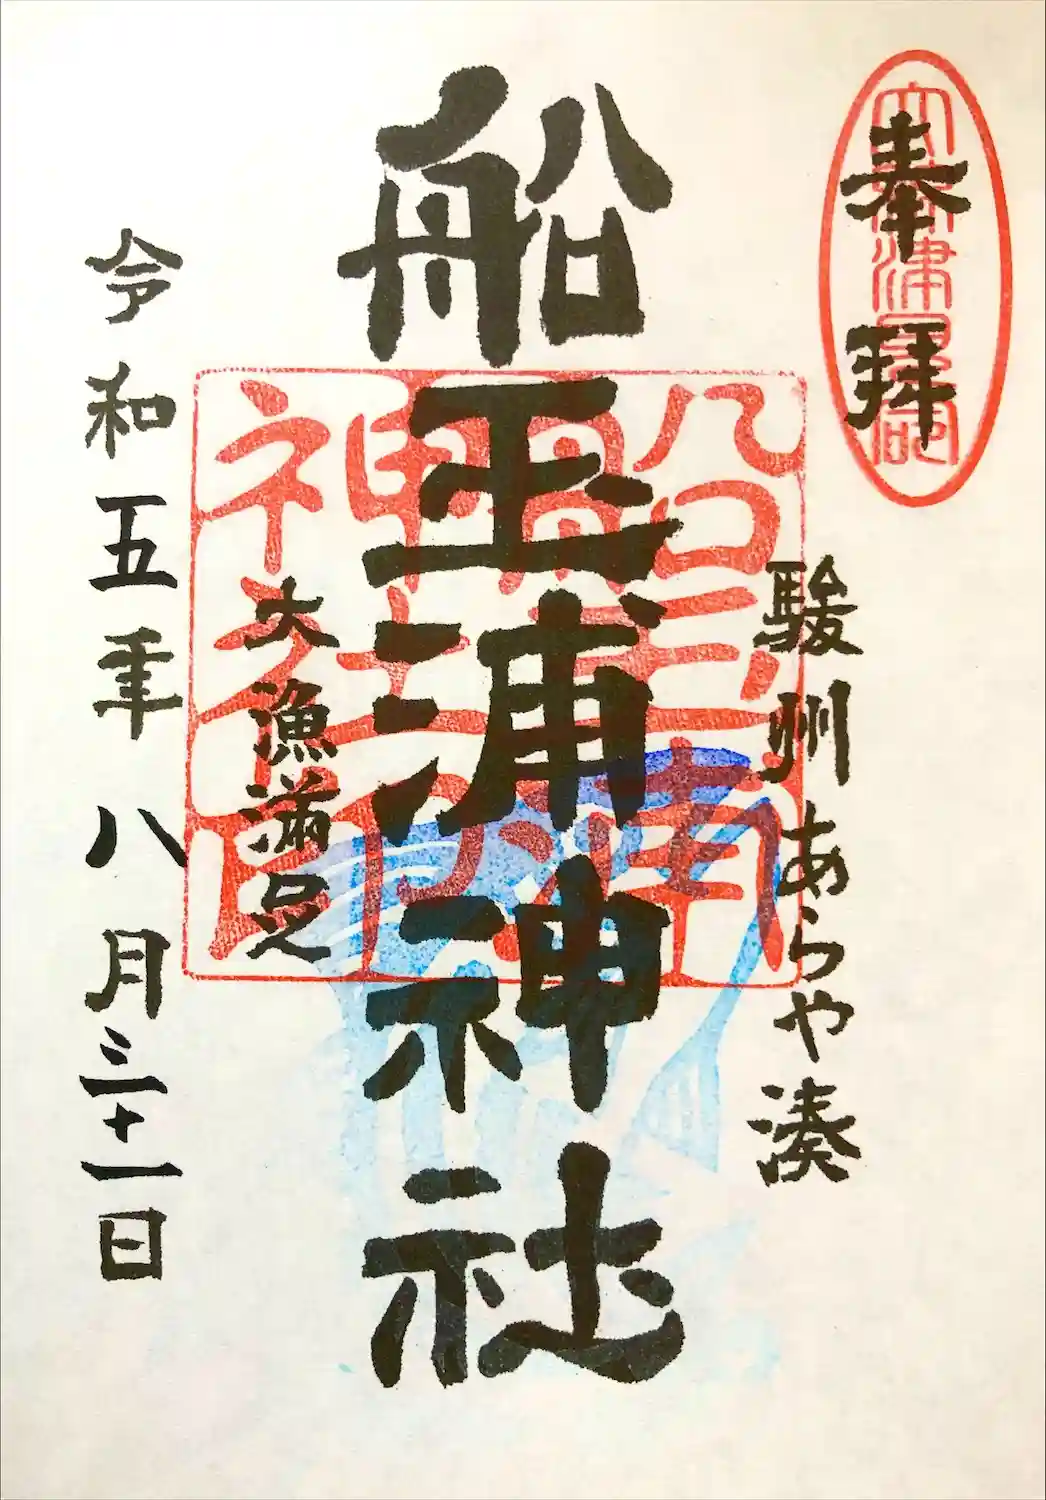 奉拝
駿州あらや湊
船玉浦神社
船玉浦神社
大漁満足
令和五年八月三十一日